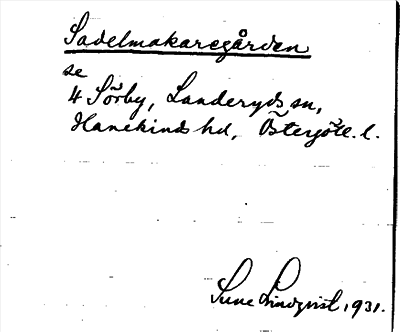 Sadelmakaregården
se
4 Sörby, Landeryds sn,
Hanekinds hd, Östergötl. l.
Sune Lindqvist, 1931.